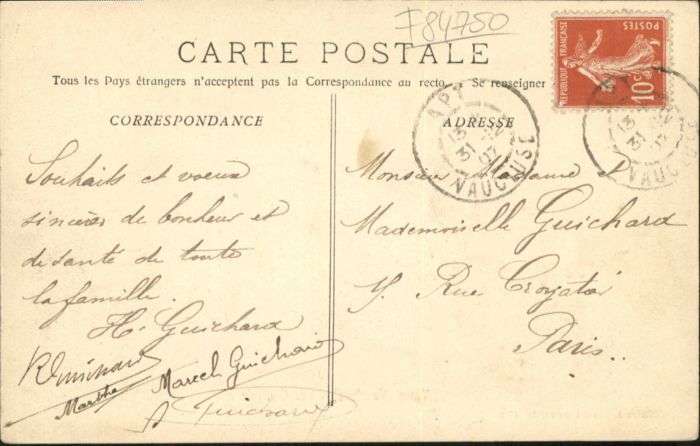 F84750
CARTE POSTALE
Tous les Pays étrangers n'acceptent pas la Correspondance au recto. Se renseigner
CORRESPONDANCE
ADRESSE
REPUBLIQUE FRANÇAISE
POSTES
10c
APT
13
31
07
VAUCLUSE
13
31
VAUCLUSE
Souhaits et voeux
sincères de bonheur et
de santé de toute
la famille.
H. Guichard
Marcel Guichard
Marthe
Monsieur Madame et
Mademoiselle Guichard
Rue
Paris.